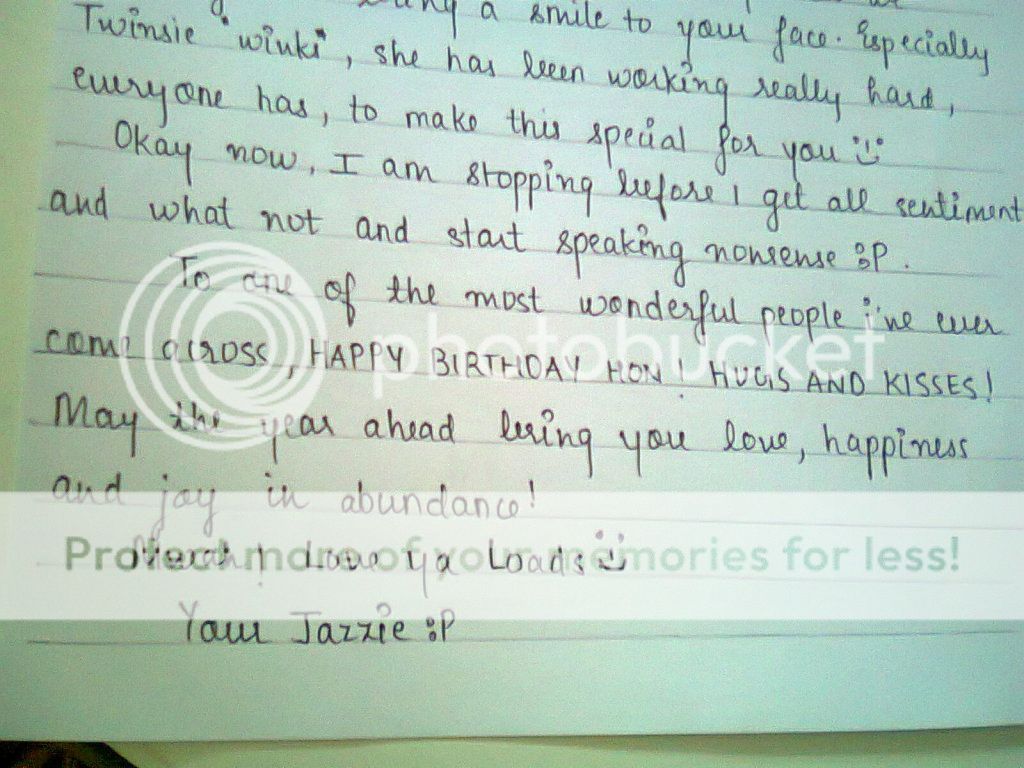 a smile to your face. Especially
Twinsie *winks*, she has been working really hard,
everyone has, to make this special for you :)
Okay now, I am stopping before I get all sentiment
and what not and start speaking nonsense :P.
To one of the most wonderful people i've ever
come across, HAPPY BIRTHDAY HON! HUGS AND KISSES!
May the year ahead bring you love, happiness
and joy in abundance!
love ya Loads :)
Your Jazzie :P
photobucket
Protect more of your memories for less!